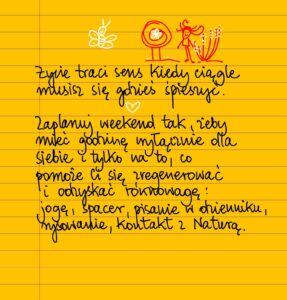 Życie traci sens kiedy ciągle
musisz się gdzieś śpieszyć.
Zaplanuj weekend tak, żeby
mieć godzinę wyłącznie dla
siebie i tylko na to, co
pomoże Ci się zregenerować
i odzyskać równowagę:
jogę, spacer, pisanie w dzienniku,
rysowanie, kontakt z Naturą.